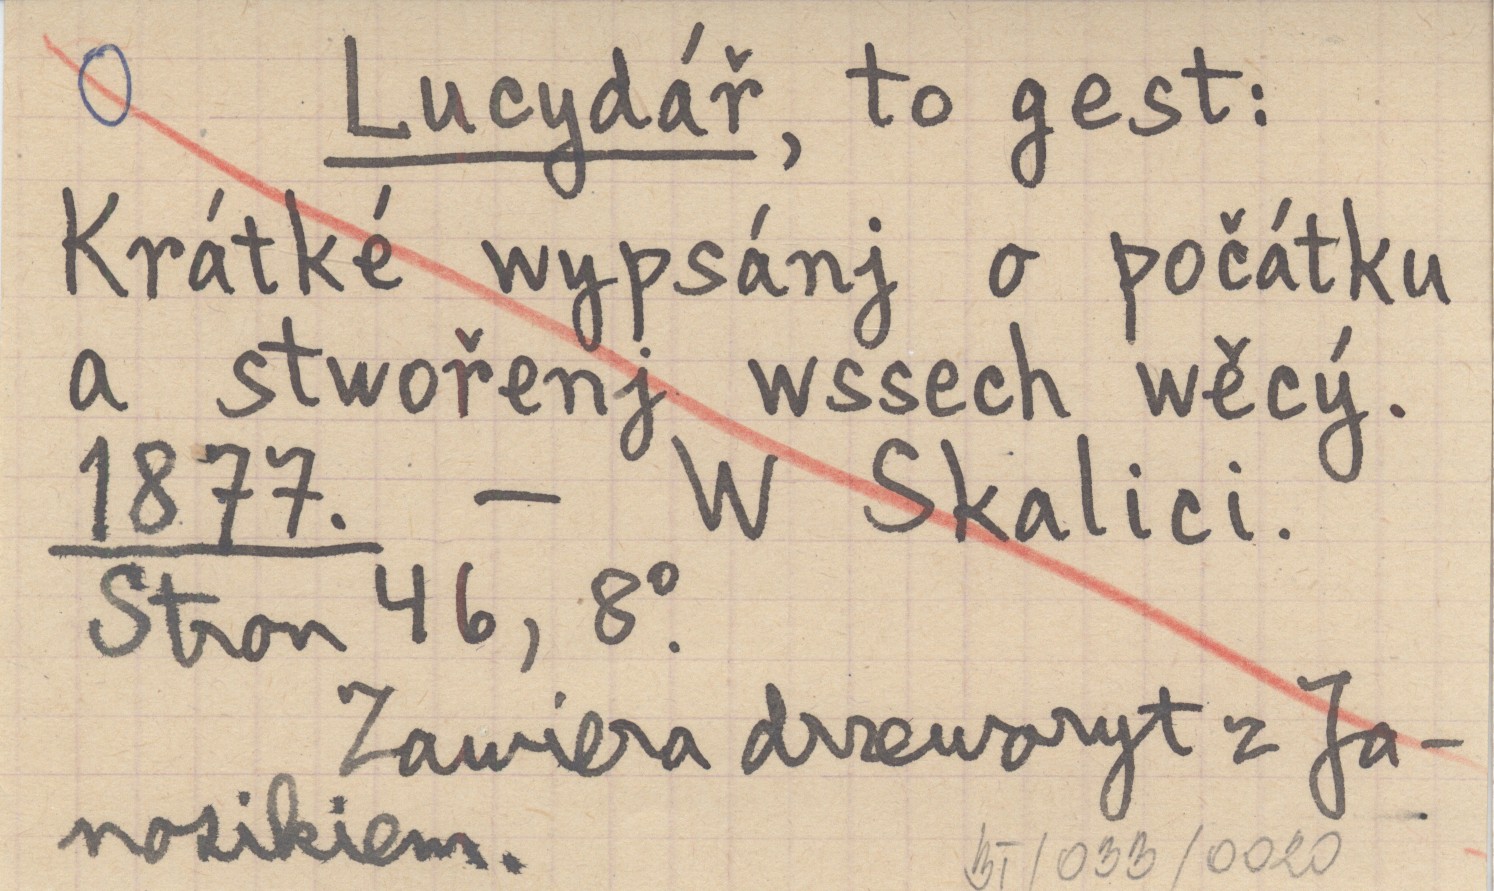 Lucydář, to gest:
Krátké wypsánj o počátku
a stwořenj wssech wěcý.
1877. — W Skalici.
Stron 46, 8º.
Zawiera drzeworyt z Ja-
nosikiem.
BT/033/0020